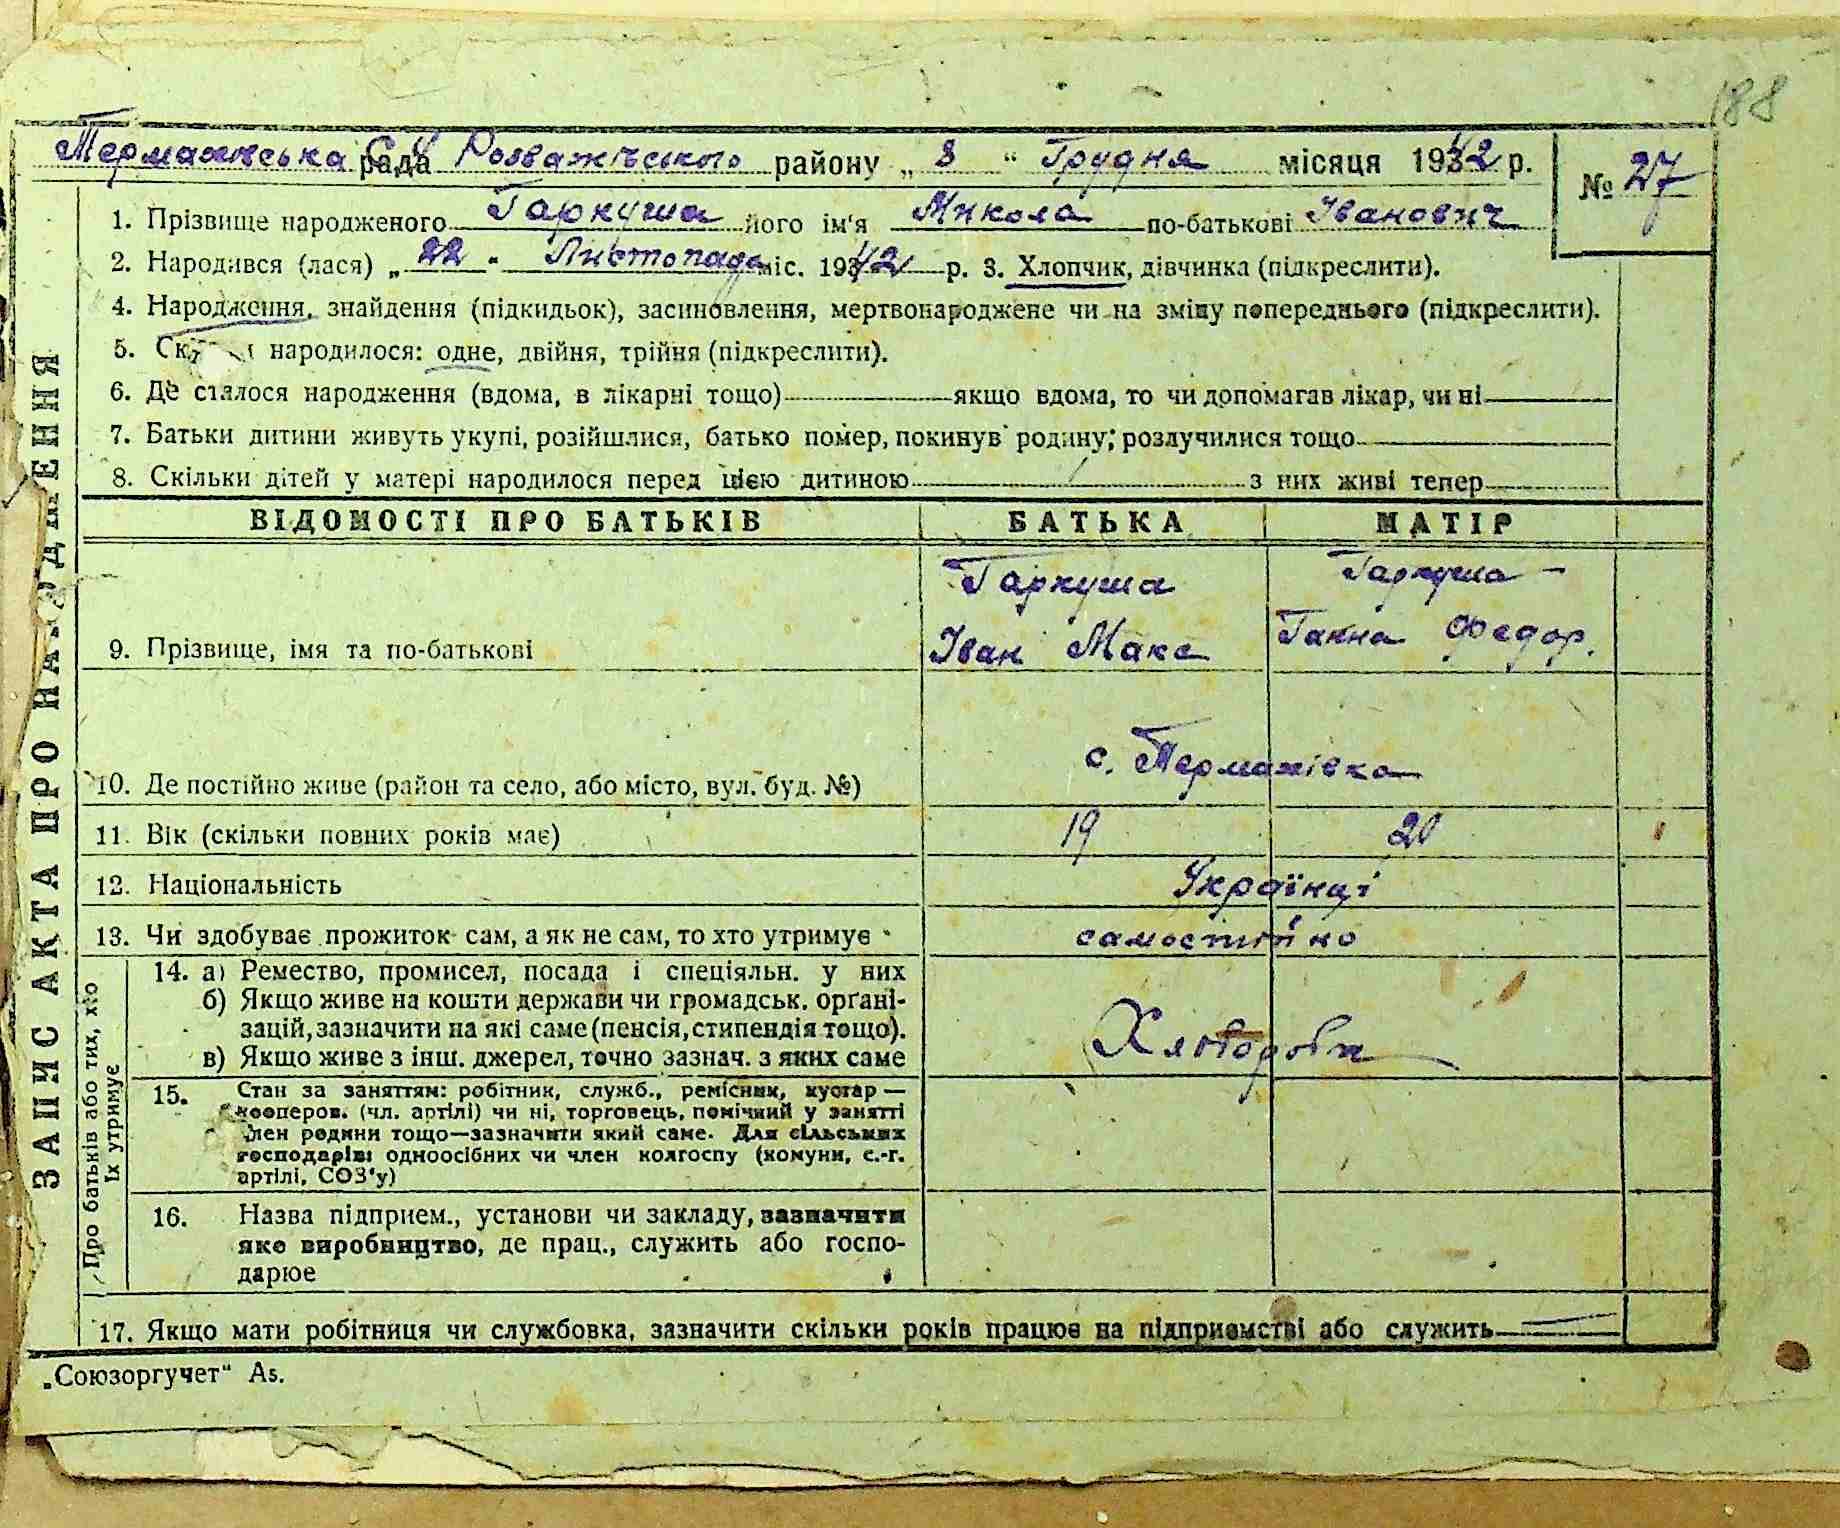 188
Термахівська С.У. рада Розважівського району „ 8 “ Грудня місяця 1942 р.
№ 27
1. Прізвище народженого Гаркуша його ім'я Микола по-батькові Іванович
2. Народився (лася) „ 22 “ Листопада міс. 1942 р. 3. Хлопчик, дівчинка (підкреслити).
4. Народження, знайдення (підкидьок), засиновлення, мертвонароджене чи на зміну попереднього (підкреслити).
5. народилося: одне, двійня, трійня (підкреслити).
6. Де сталося народження (вдома, в лікарні тощо) якщо вдома, то чи допомагав лікар, чи ні
7. Батьки дитини живуть укупі, розійшлися, батько помер, покинув родину; розлучилися тощо
8. Скільки дітей у матері народилося перед цією дитиною з них живі тепер
ЗАПИС АКТА ПРО НАРОДЖЕННЯ
ВІДОМОСТІ ПРО БАТЬКІВ БАТЬКА МАТІР
Гаркуша Гаркуша
9. Прізвище, імя та по-батькові Іван Макс Ганна Федор.
с. Термахівка
10. Де постійно живе (район та село, або місто, вул. буд. №)
11. Вік (скільки повних років має) 19 20
12. Національність Українці
13. Чи здобуває прожиток сам, а як не сам, то хто утримує самостійно
Про батьків або тих, хто
їх утримує
14. а) Ремество, промисел, посада і спеціяльн. у них
б) Якщо живе на кошти держави чи громадськ. орґані-
зацій, зазначити на які саме (пенсія, стипендія тощо).
Хлібороби
в) Якщо живе з інш. джерел, точно зазнач. з яких саме
15. Стан за заняттям: робітник, служб., ремісник, кустар —
кооперов. (чл. артілі) чи ні, торговець, помічний у занятті
член родини тощо—зазначити який саме. Для сільських
господарів: одноосібних чи член колгоспу (комуни, с.-г.
артілі, СОЗ'у)
16. Назва підприєм., установи чи закладу, зазначити
яке виробництво, де прац., служить або госпо-
дарює
17. Якщо мати робітниця чи службовка, зазначити скільки років працює на підприємстві або служить
„Союзоргучет“ As.